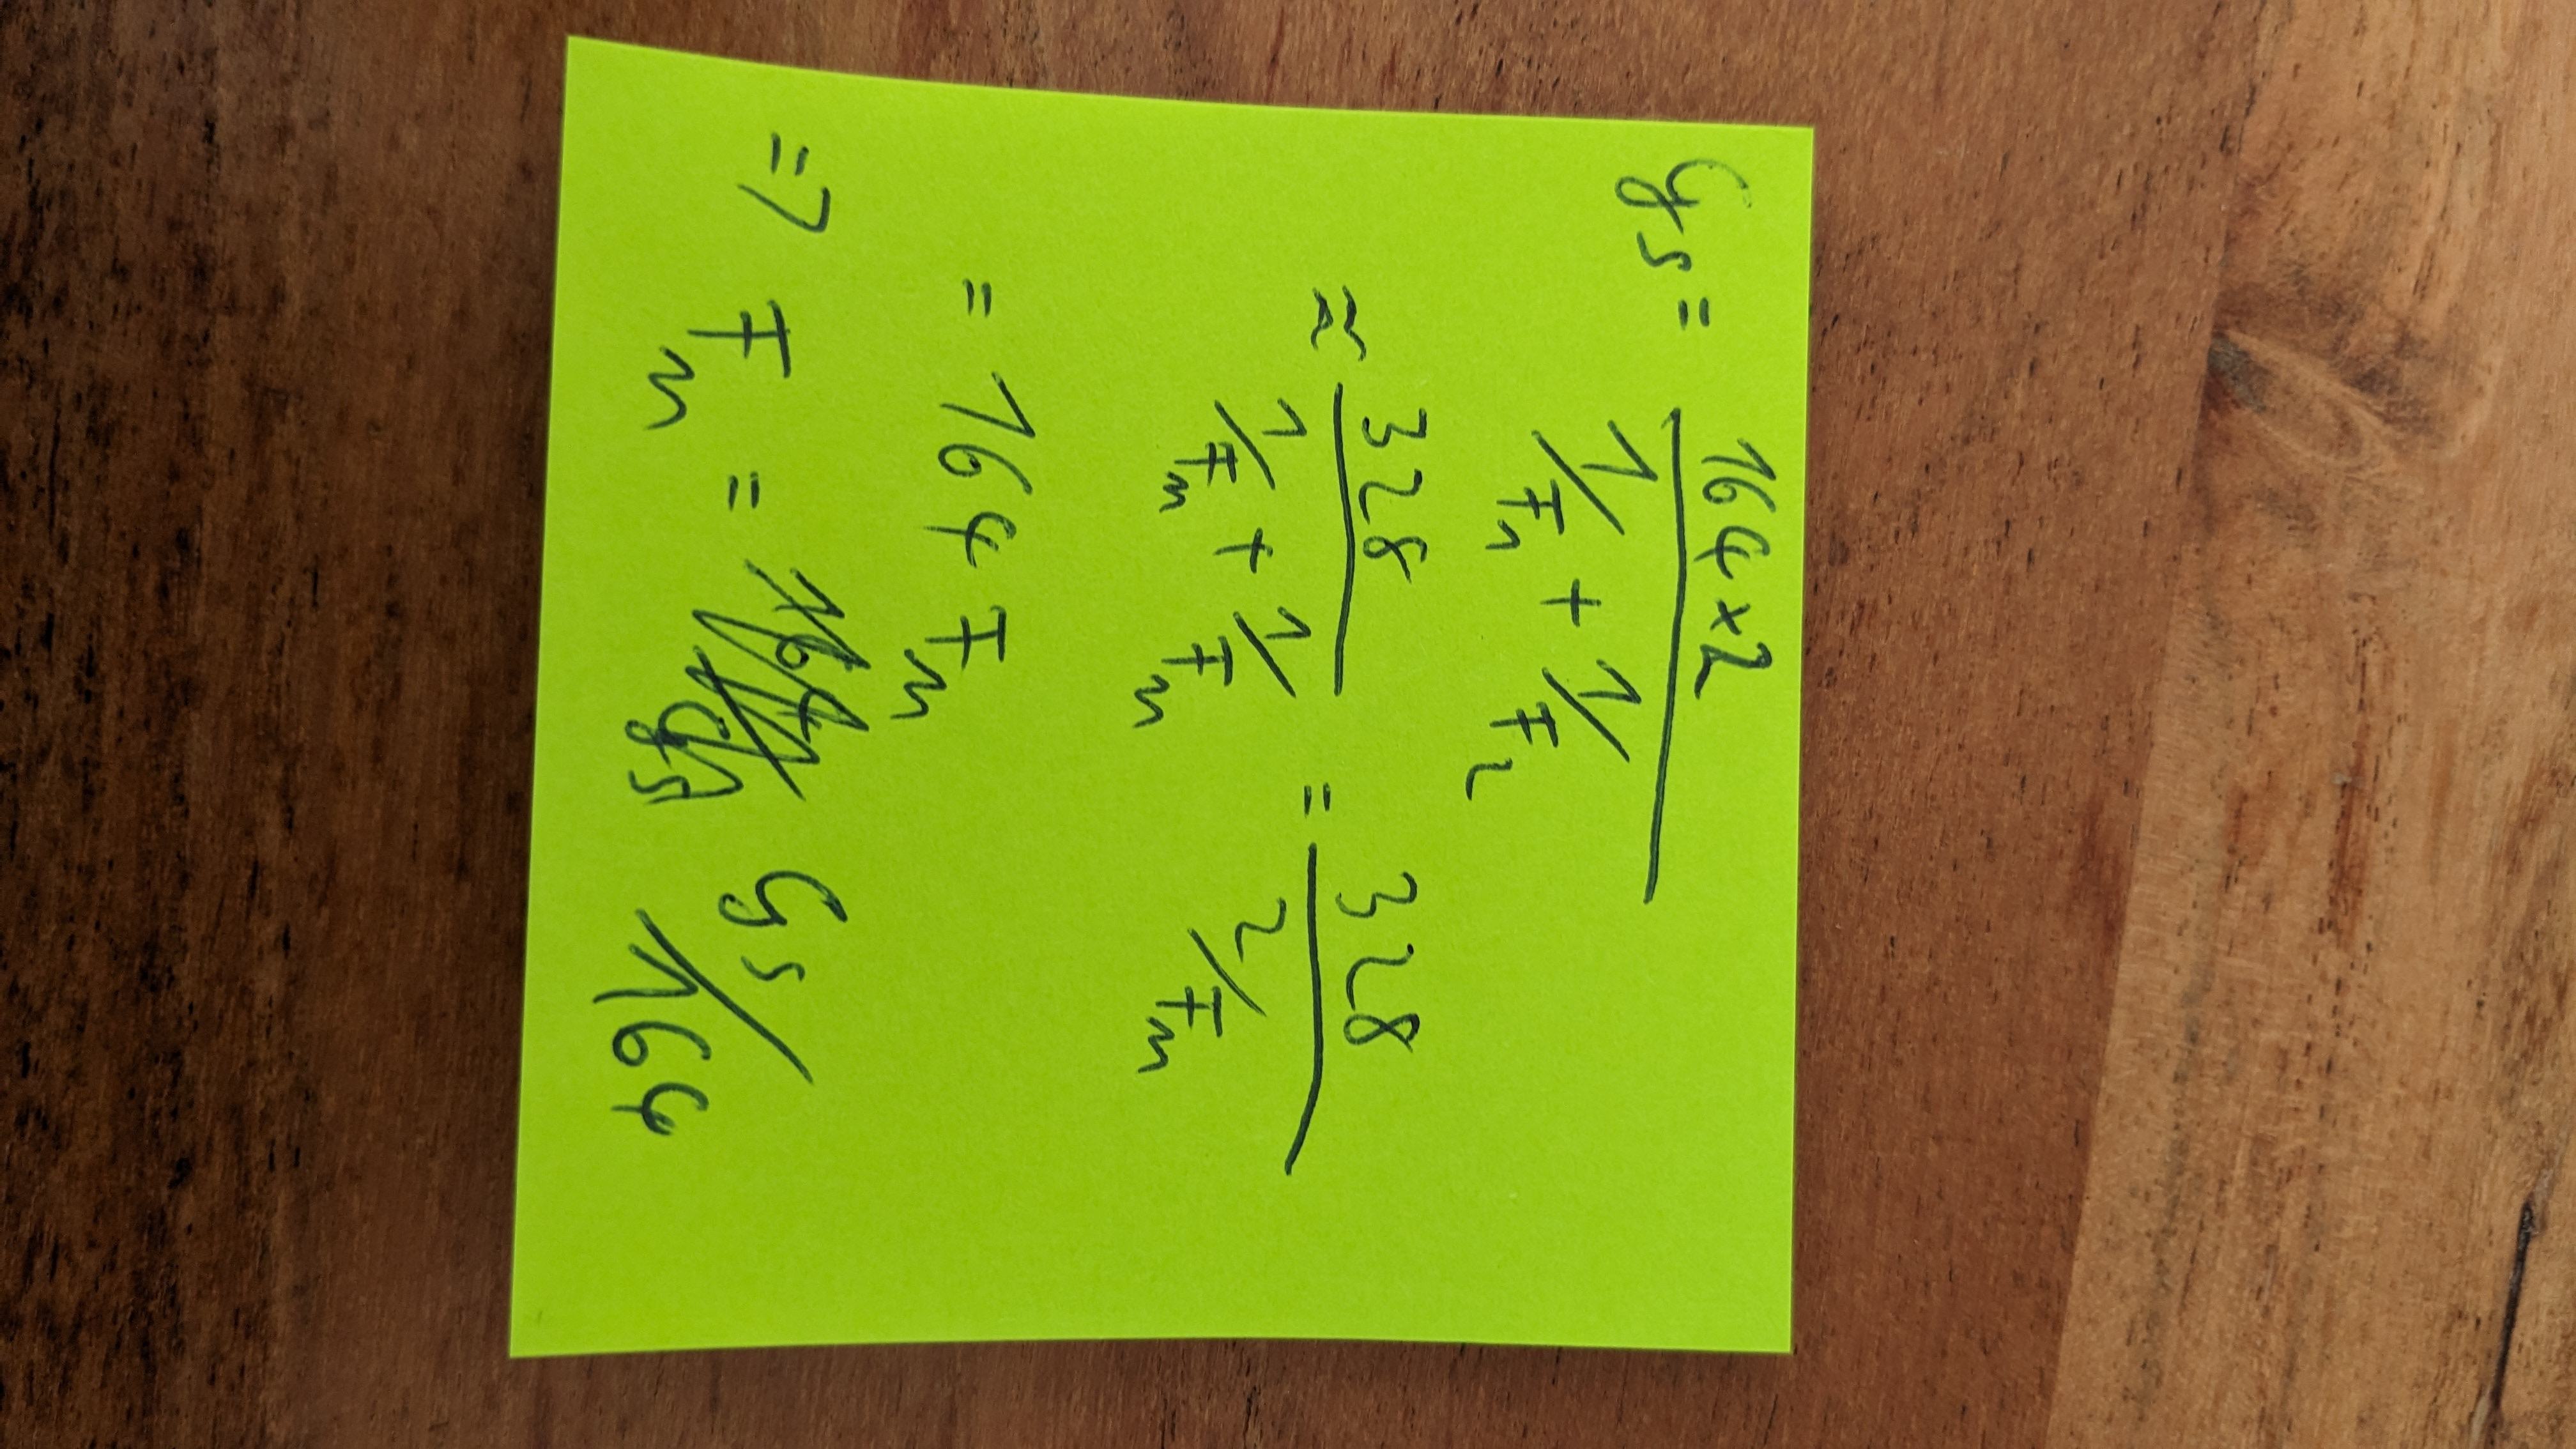 Gs = 164×2 / (1/F1 + 1/F2)
≈ 328 / (1/Fm + 1/Fm) = 328 / (2/Fm)
= 164 Fm
=> Fm = Gs/164